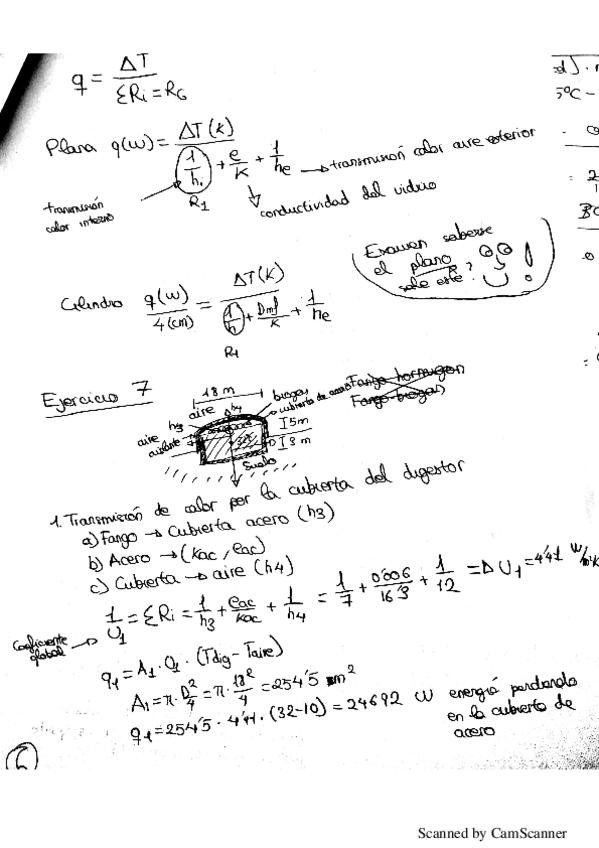 q = ΔT / ΣRi = RG
Plana q(W) = ΔT(K) / (1/hi + e/K + 1/he) → transmisión calor aire exterior
R1
transmisión calor interno
conductividad del vidrio
Examen saberse
el plano
sale este!
Cilindro q(W)/4(cm) = ΔT(K) / (1/h + Dml/K + 1/he)
R1
Ejercicio 7
18 m
aire h4 biogas
cubierta de acero
Fango hormigon
Fango-biogas
h3
aire
aislante
I 5m
I 3 m
Suelo
1. Transmisión de calor por la cubierta del digestor
a) Fango → Cubierta acero (h3)
b) Acero → (Kac, eac)
c) Cubierta → aire (h4)
Coeficiente global → 1/U1 = ΣRi = 1/h3 + eac/Kac + 1/h4 = 1/7 + 0'006/16'3 + 1/12 =Δ U1 = 4'41 W/m²K
q1 = A1 · U1 · (Tdig - Taire)
A1 = π · D²/4 = π · 18²/4 = 254'5 m²
q1 = 254'5 · 4'41 · (32-10) = 24692 W energía perdida
en la cubierta de
acero
6
Scanned by CamScanner